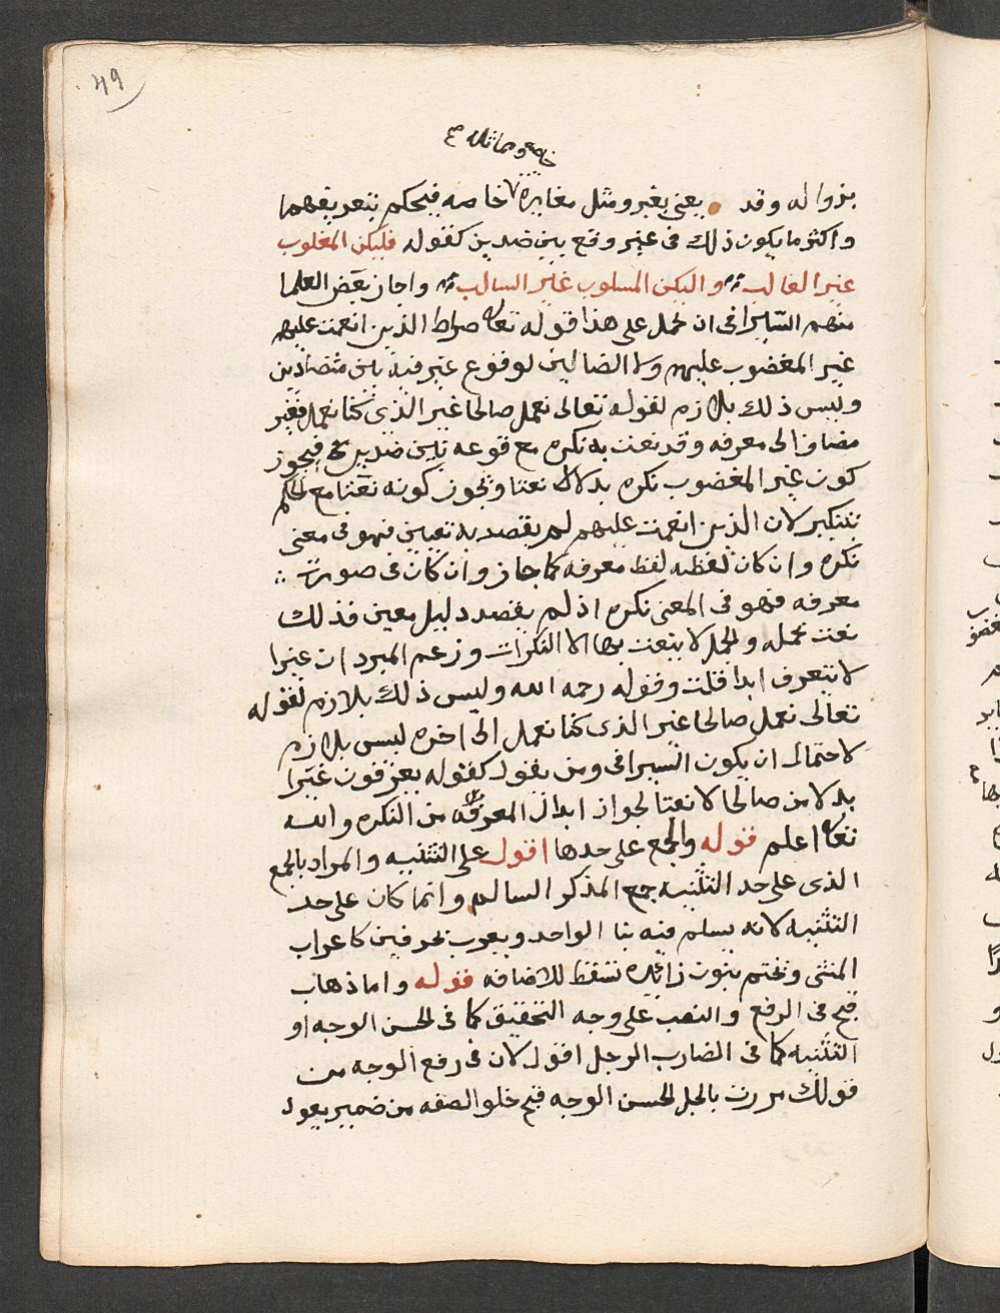 49
خاصه ومماثله ع
بزواله وقد يعني بغير ومثل مغايره خاصه فيحكم بتعريفهما
واكثر ما يكون ذلك في غير وقع بين ضدين كقوله فليكن المغلوب
غير الغالب واليكن المسلوب غير السالب واجاز بعض العلما
منهم السيرافي ان يحمل على هذا قوله تعالى صراط الذين انعمت عليهم
غير المغضوب عليهم ولا الضالين لوقوع غير فيه بين متضادين
وليس ذلك بلازم لقوله تعالى نعمل صالحا غير الذي كنا نعمل فغير
مضاف الى معرفه وقد نعت به نكره مع وقوعه بين ضدين فيجوز
كون غير المغضوب نكره بدلا لا نعتا ويجوز كونه نعتا مع الحكم
بتنكير لان الذين انعمت عليهم لم يقصد به تعيين فهو في معنى
نكره وان كان لفظه لفظ معرفه كما جاز وان كان في صورت
معرفه فهو في المعنى نكره اذ لم يقصد دليل معين فذلك
نعت بجمله والجمل لا ينعت بها الا النكرات وزعم المبرد ان غيرا
لا تتعرف ابدا قلت وقوله رحمه الله وليس ذلك بلازم لقوله
تعالى نعمل صالحا غير الذي كنا نعمل الى اخره ليس بلازم
لاحتمال ان يكون السيرافي ومن يقول كقوله يعرفون غيرا
بدلا من صالحا لا نعتا لجواز ابدال المعرفه من النكره والله
تعالى اعلم قوله والجمع على حدها اقول على التثنيه والمراد بالجمع
الذي على حد التثنيه جمع المذكر السالم وانما كان على حد
التثنيه لانه يسلم فيه بنا الواحد ويعرب بحرفين كاعراب
المثنى ويختم بنون زائده تسقط للاضافه قوله واما ذهاب
قبح في الرفع والنصب على وجه التحقيق كما في الحسن الوجه او
التثنيه كما في الضارب الرجل اقول لان في رفع الوجه من
قولك مررت بالرجل الحسن الوجه قبح خلو الصفه من ضمير يعود